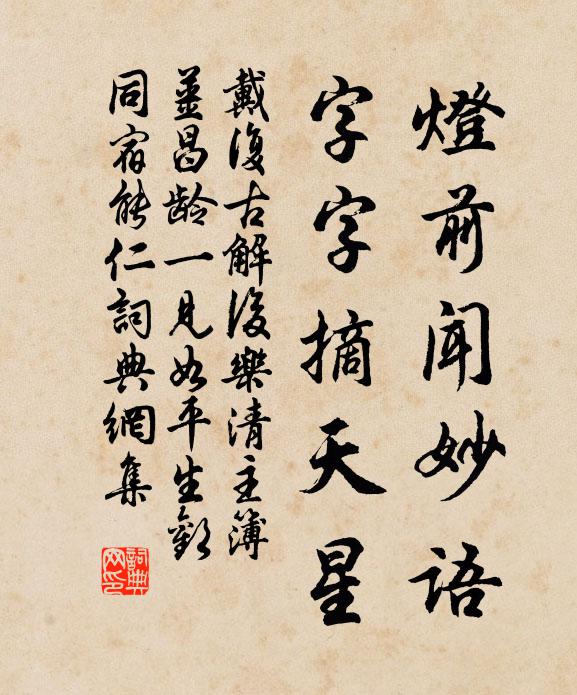 燈前聞妙語
字字摘天星
戴復古解後樂清主簿
姜昌齡一見如平生歡
同宿能仁詞典網集
詞典
网印